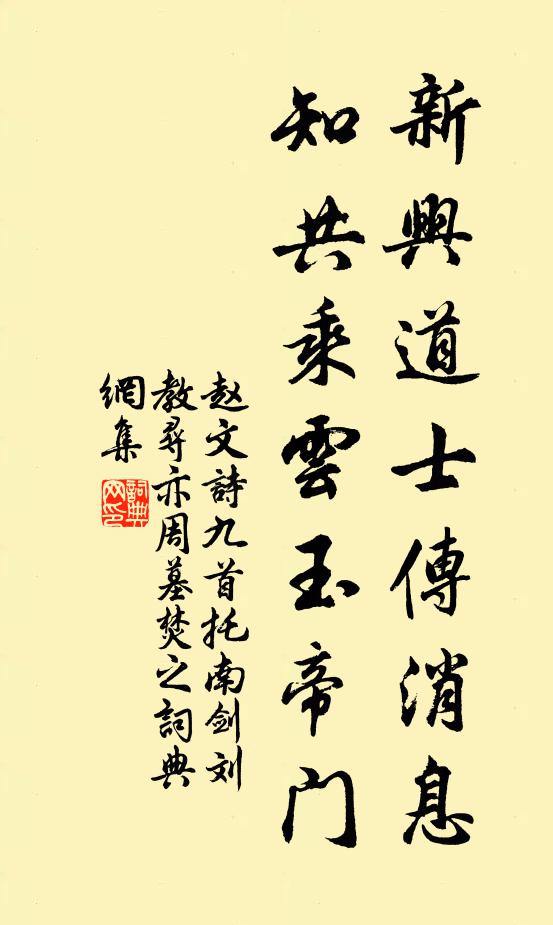 新興道士傳消息
知共乘雲玉帝門
赵文詩九首托南劍刘
教尋亦周墓焚之詞典
網集
詞典
网印